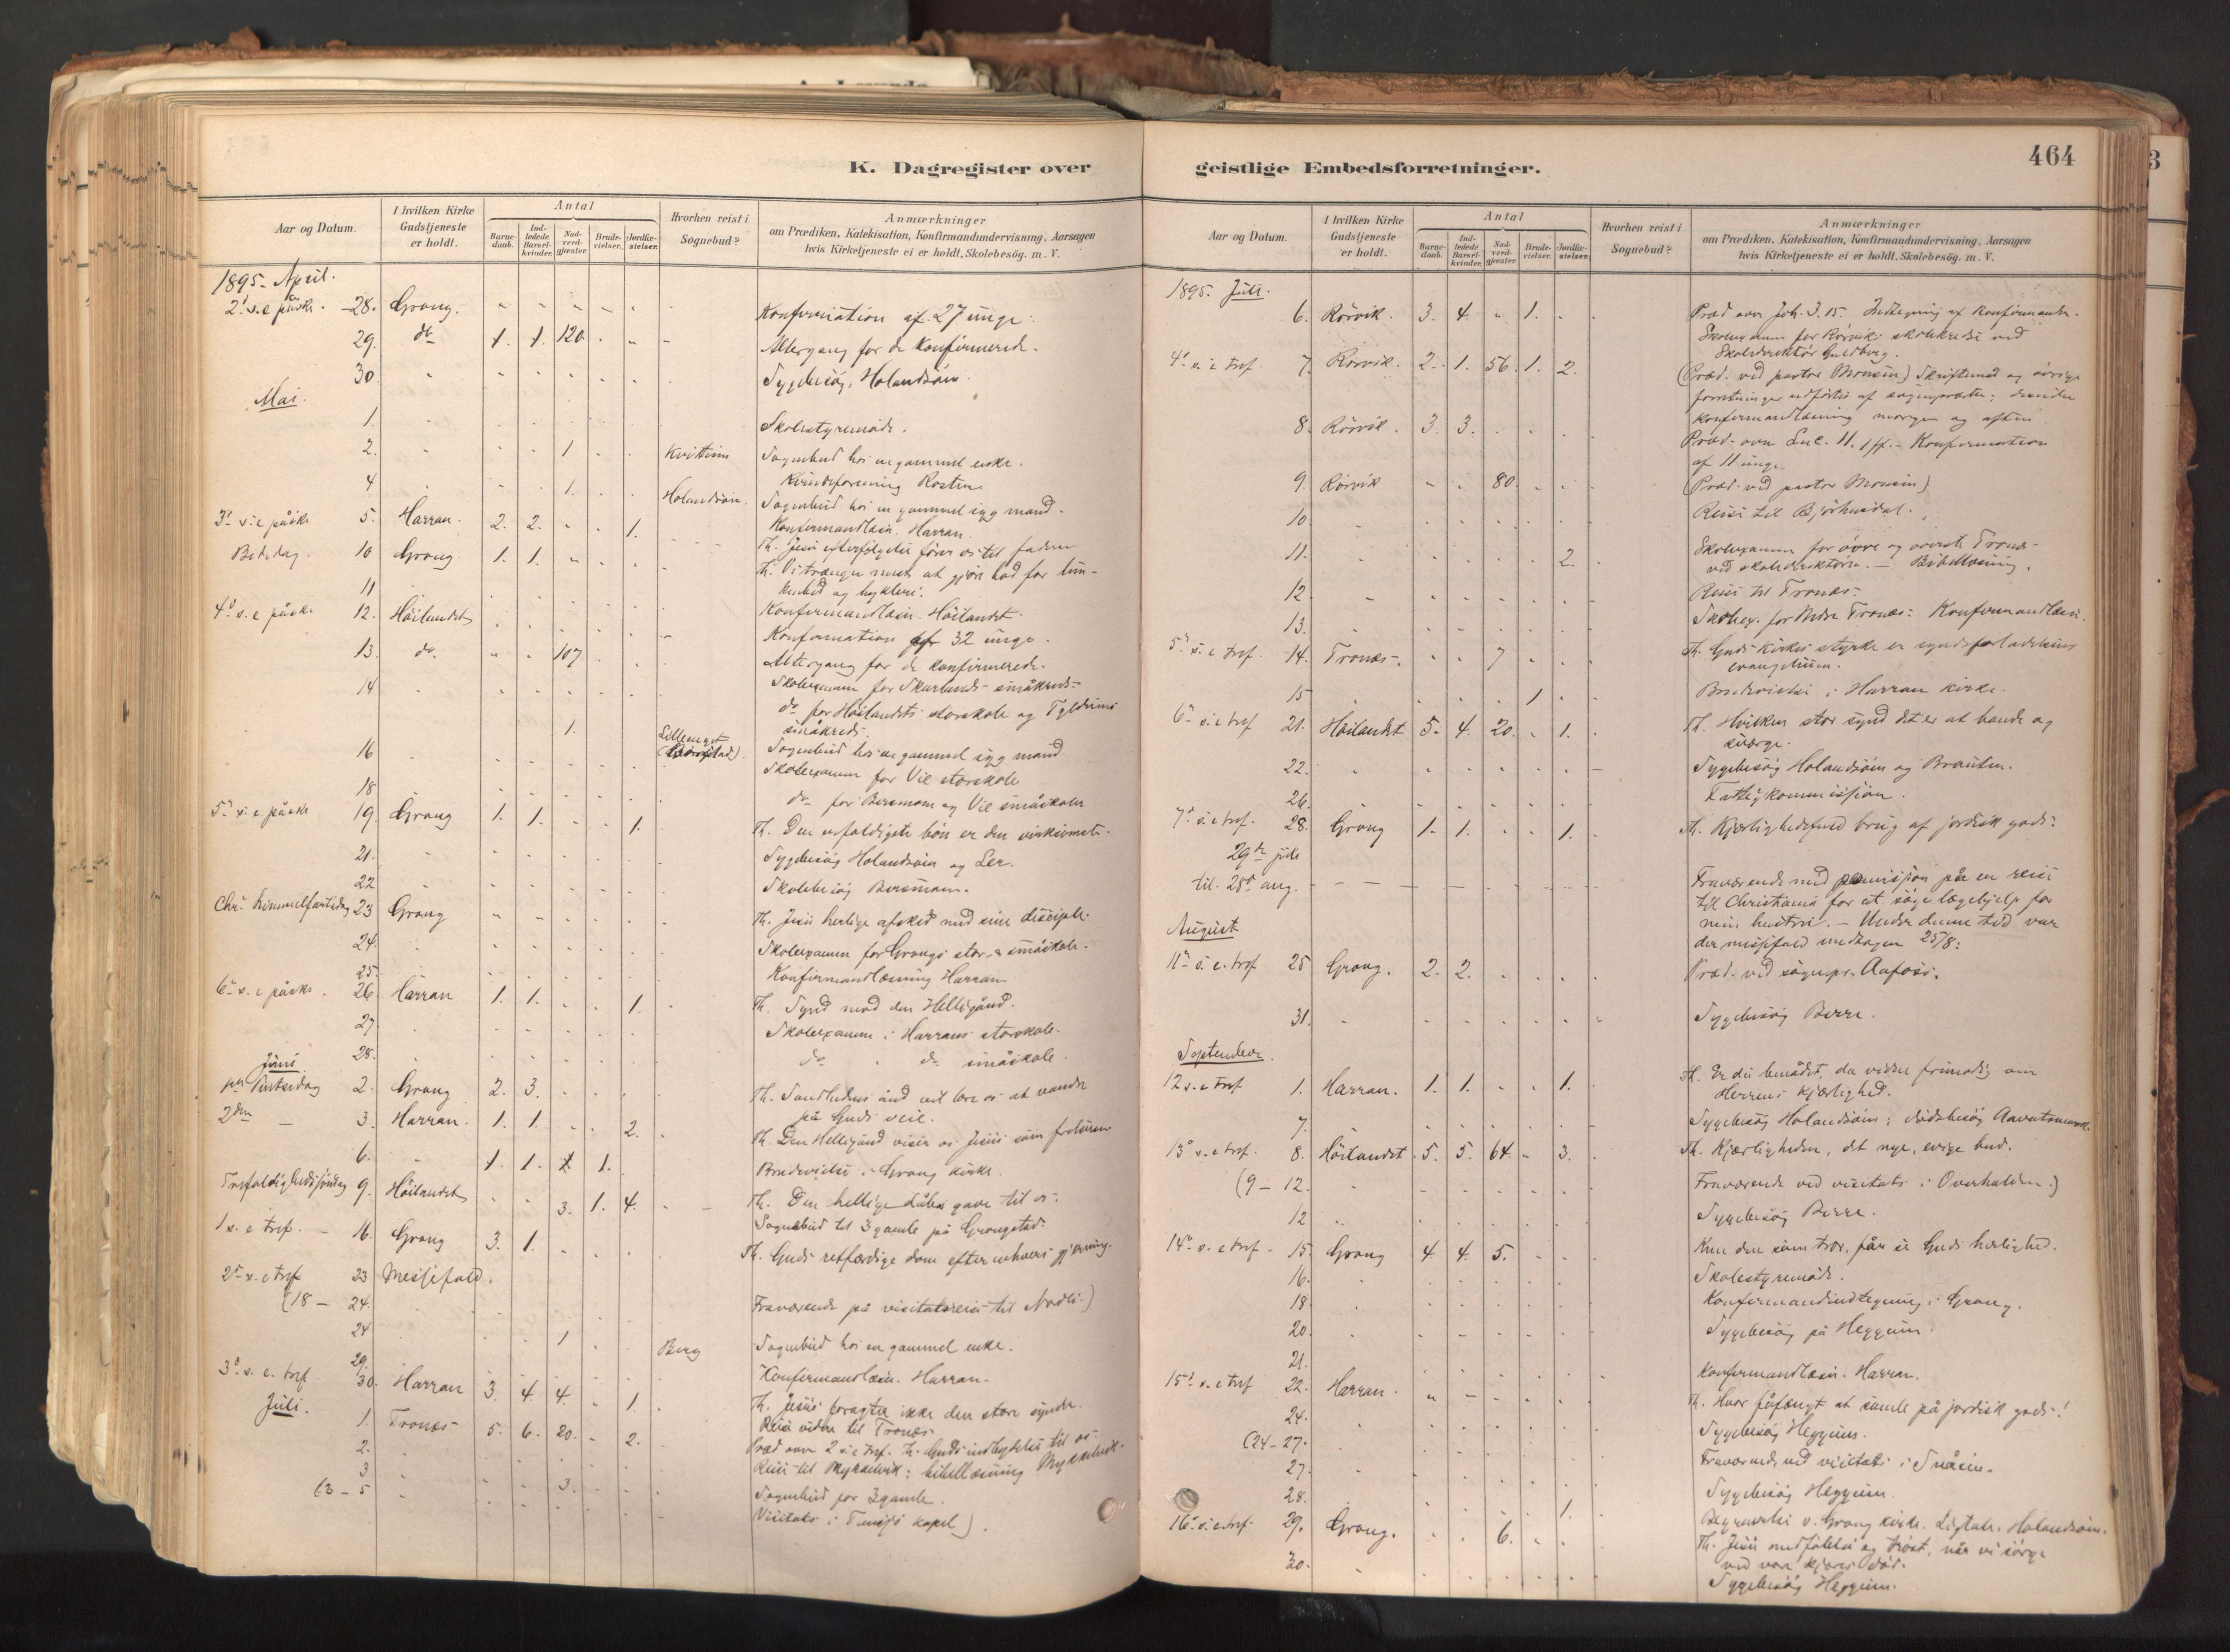 K. Dagregister over
Aar og Datum.
I hvilken Kirke Gudstjeneste er holdt.
Antal
Barne-daab.
Ind-ledede Barsel-kvinder.
Nad-verd-gjæster.
Brude-vielser.
Jordfæ-stelser.
Hvorhen reist i Sognebud?
Anmærkninger
om Prædiken, Katekisation, Konfirmandundervisning, Aarsagen
hvis Kirketjeneste ei er holdt, Skolebesög. m. V.
1895. April.
2d s. e. påske. 28. Grong. Konfirmation af 27 unge.
29. do 1. 1. 120 Altergang for de konfirmerede.
30. Sygebesög, Holandsöien.
Mai.
1. Skolestyremöde.
2. 1 Sognebud hos en gammel enke.
Kvindeforening Rosten.
4 1. Holandsöien. Sognebud hos en gammel syg mand.
3d s. e. påske 5. Harran. 2. 2. 1. Konfirmandlæsn. Harran.
Th. Jesu efterfölgelse förer os til faderen
Bededag. 10 Grong 1. 1. Th. Vi trænger mest at gjöre bod for lun-
kenhed og hykleri.
11 Konfirmandlæsn. Höilandet.
4d s. e. påske 12. Höilandet Konfirmation af 32 unge.
13. do. 107 Altergang for de konfirmerede.
14 Skolexamen for Skarlands småkreds.
do for Höilandets storskole og Tyldums
småkreds.
1. Sognebud hos en gammel syg mand
16 Skolexamen for Vie storskole
18 do for Bersmoen og Vie småskoler
5d s. e. påske 19. Grong 1. 1. 1. Th. Den enfoldigste bön er den virksomste.
21. Sygebesög Holandsöien og Ler.
22 Skolebesög Bersmoen.
Chr. himmelfartsdag 23 Grong Th. Jesu herlige afsked med sine disciple.
24. Skolexamen for Grongs stor- & småskole.
25. Konfirmandlæsning Harran
6d s. e. påske. 26. Harran 1. 1. 1. Th. Synd mod den Helligånd.
27 Skolexamen i Harrans storskole.
28. do do småskole.
Juni
1ste Pintsedag 2. Grong 2. 3. Th. Sandhedens ånd vil lære os at vandre
på Guds veie.
2den – 3. Harran. 1. 1. 2. Th. Den Helligånd viser os Jesus som frelseren
6. 1. 1. 1. 1. Brudevielse i Grong kirke.
Trefoldighedssöndag 9. Höilandet 3. 1. 4. Th. Den hellige dåbs gave til os.
Sognebud til 3 gamle på Grongstad.
1 s. e. tref. 16. Grong 3. 1. Th. Guds retfærdige dom efter enhvers gjerning.
2d s. e. tref 23 Messefald.
(18 – 24. Fraværende på visitatsreise til Nordli.)
24 1 Berg Sognebud hos en gammel enke.
29. Konfirmandlæsn. Harran.
3d s. e. tref 30. Harran 3. 4. 4. 1. Th. Jesus foragter ikke den store synder.
Juli.
Reise videre til Tronæs
1. Tronæs 5. 6. 20. 2. Præd over 2 s. e. tref. Th. Guds indbydelse til os.
2. Reise til Mykkelvik: bibellæsning Mykkelvik.
3 3. Sognebud for 3 gamle.
(3 – 5 Visitats i Tunsjö kapel).
geistlige Embedsforretninger.
464
Aar og Datum.
I hvilken Kirke Gudstjeneste er holdt.
Antal
Barne-daab.
Ind-ledede Barsel-kvinder.
Nad-verd-gjæster.
Brude-vielser.
Jordfæ-stelser.
Hvorhen reist i Sognebud?
Anmærkninger
om Prædiken, Katekisation, Konfirmandundervisning, Aarsagen
hvis Kirketjeneste ei er holdt, Skolebesög. m. V.
1895. Juli.
6. Rörvik. 3. 4. 1. Præd over Joh. 3. 15. Indtegning af konfirmander.
Skolexamen for Rörvik skolekreds ved
Skoledirektör Guldberg.
4d s. e. tref. 7. Rörvik. 2. 1. 56. 1. 2. (Præd. ved pastor Monsen) Skriftemål og övrige
forretninger udförtes af sognepræsten; desuden
konfirmandlæsning morgen og aften
8. Rörvik. 3. 3. Præd. over Luc. 11. 1 ff. – Konfirmation
af 11 unge.
9. Rörvik 80. (Præd. ved pastor Monsen)
10 Reise til Björhusdal.
11. 2. Skolexamen for övre og överste Tronæs
ved skoledirektören. – Bibellæsning.
12 Reise til Tronæs.
13. Skolex. for Nedre Tronæs: Konfirmandlæsn.
5d s. e. tref. 14. Tronæs. 7 Th. Guds kirkes styrke er syndsforladelsens
evangelium.
15 1 Brudevielse i Harran kirke.
6d s. e. tref 21. Höilandet 5. 4. 20. 1. Th. Hvilken stor synd det er at bande og
sværge.
22. Sygebesög Holandsöien og Brauten.
26. Fattigkommission.
7d s. e. tref. 28. Grong 1. 1. 1. Th. Kjærlighedsfuld brug af jordisk gods.
29de juli
til 28d aug. Fraværende med permission på en reise
til Christiania for at söge lægehjelp for
min hustru. – Under denne tid var
der messefald undtagen 25/8:
August
11d s. e. tref 25 Grong. 2. 2. Præd. ved sognepr. Aafoss.
31. Sygebesög Berre.
September.
12 s. e. tref 1. Harran. 1. 1. 1. Th. Er du benådet, da vidne frimodig om
Herrens kjærlighed.
7. Sygebesög Holandsöien;
13d s. e. tref. 8. Höilandet 5. 5. 64. 3. Th. Kjærligheden, det nye, evige bud.
(9 – 12. Fraværende ved visitats i Overhalden.)
12 Sygebesög Berre.
14d s. e. tref. 15. Grong 4. 4. 5. Kun den som tror, får se Guds herlighed.
16. Skolestyremöde.
18. Konfirmandindtegning i Grong.
20. Sygebesög på Heggum.
21. Konfirmandlæsn. Harran.
15d s. e. tref 22. Harran. Th. Hvor fåfængt at samle på jordisk gods!
24. Sygebesög Heggum.
(24–27. Fraværende ved visitats i Snåsen.
27. Sygebesög Heggum.
28. 1. Begravelse v. Grong kirke. Ligtale. Holandsöien.
16d s. e. tref. 29. Grong. 6. Th. Jesu medfölelse og tröst, når vi sörge
ved vore kjæres död.
30. Sygebesög Heggum.